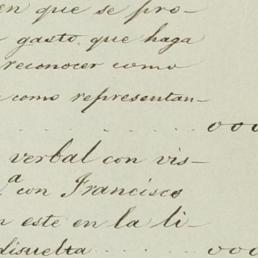 en que se pro-
gasto que haga
reconocer como
como representan-
. . . . . . . . ooo
verbal con vis-
a con Francisco
n este en la li-
disuelta . . . . ooo